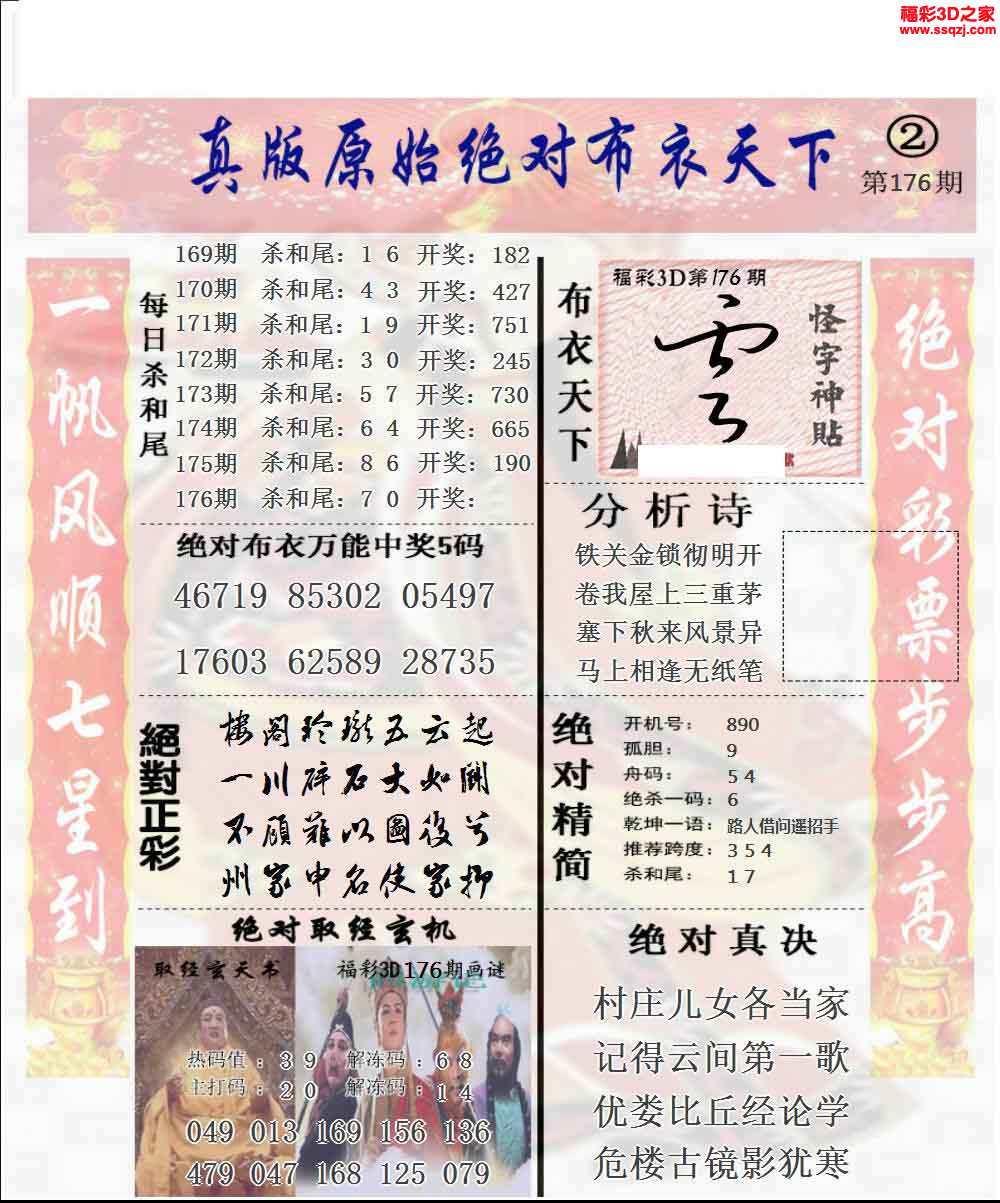 福彩3D之家
www.ssqzj.com
真版原始绝对布衣天下
②
第176期
一帆风顺七星到
每日杀和尾
169期 杀和尾：1 6 开奖：182
170期 杀和尾：4 3 开奖：427
171期 杀和尾：1 9 开奖：751
172期 杀和尾：3 0 开奖：245
173期 杀和尾：5 7 开奖：730
174期 杀和尾：6 4 开奖：665
175期 杀和尾：8 6 开奖：190
176期 杀和尾：7 0 开奖：
绝对布衣万能中奖5码
46719 85302 05497
17603 62589 28735
絕對正彩
楼阁玲珑五云起
一川碎石大如斗
不顾难以图后
州家申名使家抑
绝对取经玄机
取经玄天书
福彩3D176期画谜
热码值：3 9 解冻码：6 8
主打码：2 0 解冻码：1 4
049 013 169 156 136
479 047 168 125 079
布衣天下
福彩3D第176期
怪字神贴
分析诗
铁关金锁彻明开
卷我屋上三重茅
塞下秋来风景异
马上相逢无纸笔
绝对精简
开机号： 890
孤胆： 9
舟码： 5 4
绝杀一码：6
乾坤一语：路人借问遥招手
推荐跨度：3 5 4
杀和尾： 1 7
绝对真决
村庄儿女各当家
记得云间第一歌
优娄比丘经论学
危楼古镜影犹寒
绝对彩票步步高